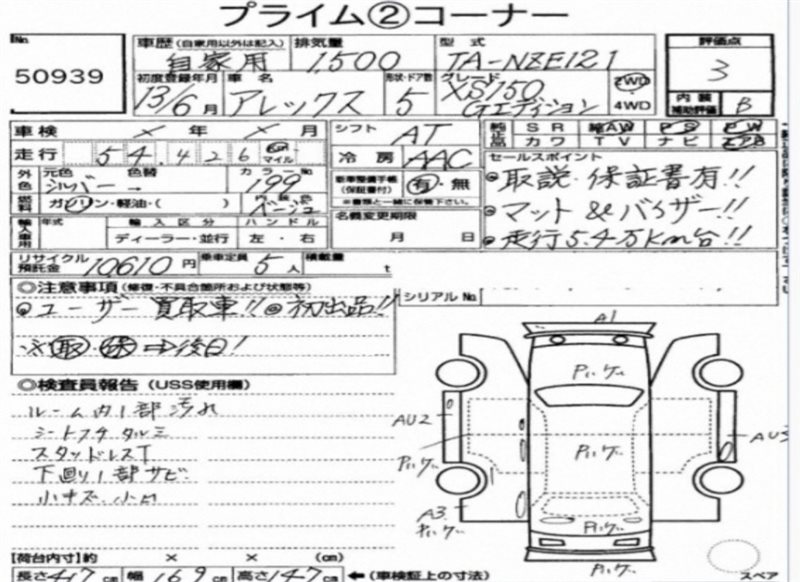 プライム②コーナー
No. 50939
車歴 (自家用以外は記入) 自家用
排気量 1,500
型式 TA-NZE121
評価点 3
初度登録年月 13/6月
車名 アレックス
形状・ドア数 5
グレード XS150 Gエディション
2WD
4WD
内装補助評価 B
車検 × 年 × 月
シフト AT
SR 純AW PS PW
カワ TV ナビ エアB
走行 54,426 Km マイル
冷房 AAC
外色 元色 シルバー 色替 → カラーNo 199
燃料 ガソリン・軽油・( ) 内装色 ベージュ
新車整備手帳(保証書付) 有・無
※書類と一緒に保管下さい。
セールスポイント
◉取説・保証書有!!
◉マット&バイザー!!
◉走行5.4万Km台!!
輸入車用 年式 輸入区分 ハンドル
ディーラー・並行 左・右
名義変更期限
月 日
リサイクル預託金 10610円 乗車定員 5人 積載量 t
◎注意事項 (修復・不具合箇所および状態等)
シリアルNo.
◉ユーザー買取車!! ◉初出品!!
※取・保⇒後日!
◎検査員報告 (USS使用欄)
ルーム内1部汚れ
シートフチタルミ
スタッドレスT
下廻り1部サビ
小キズ 小凹
A1
Pいケー
AU2
Pいケー
Pいケー
A3
Pいケー
Pいケー
Pいケー
スペア
【荷台内寸】約 × × (cm)
長さ417cm 幅169cm 高さ147cm ←(車検証上の寸法)